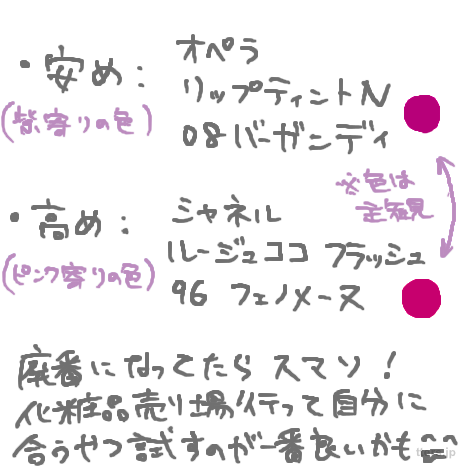 ・安め：
オペラ
リップティントN
08バーガンディ
(紫寄りの色)
※色は
主観
・高め：
シャネル
ルージュココ フラッシュ
96 フェノメーヌ
(ピンク寄りの色)
廃番になってたらスマソ！
化粧品売り場行って自分に
合うやつ試すのが一番良いかも